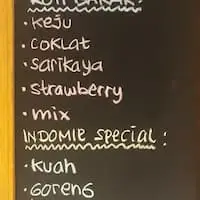 ROTI BAKAR:
• Keju
• COKLAT
• Sarikaya
• Strawberry
• mix
INDOMIE Special:
• Kuah
• GORENG